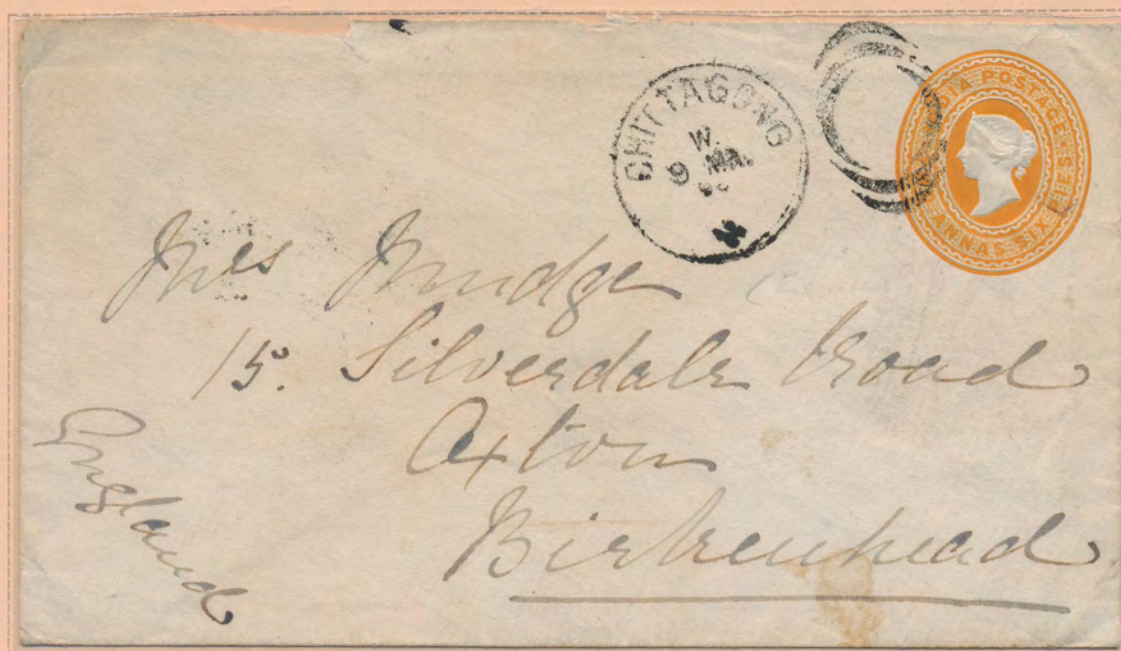 CHITTAGONG
W.
9 MA.
INDIA POSTAGE
ANNAS SIX
Mrs Mudge
15. Silverdale Road
Oxton
Birkenhead
England